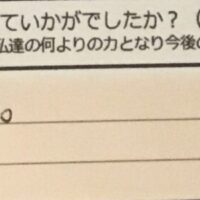 ていかがでしたか？（
私達の何よりの力となり今後の
。